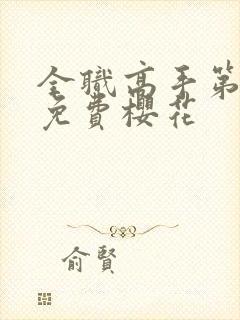 全職高手第
免費櫻花
俞賢